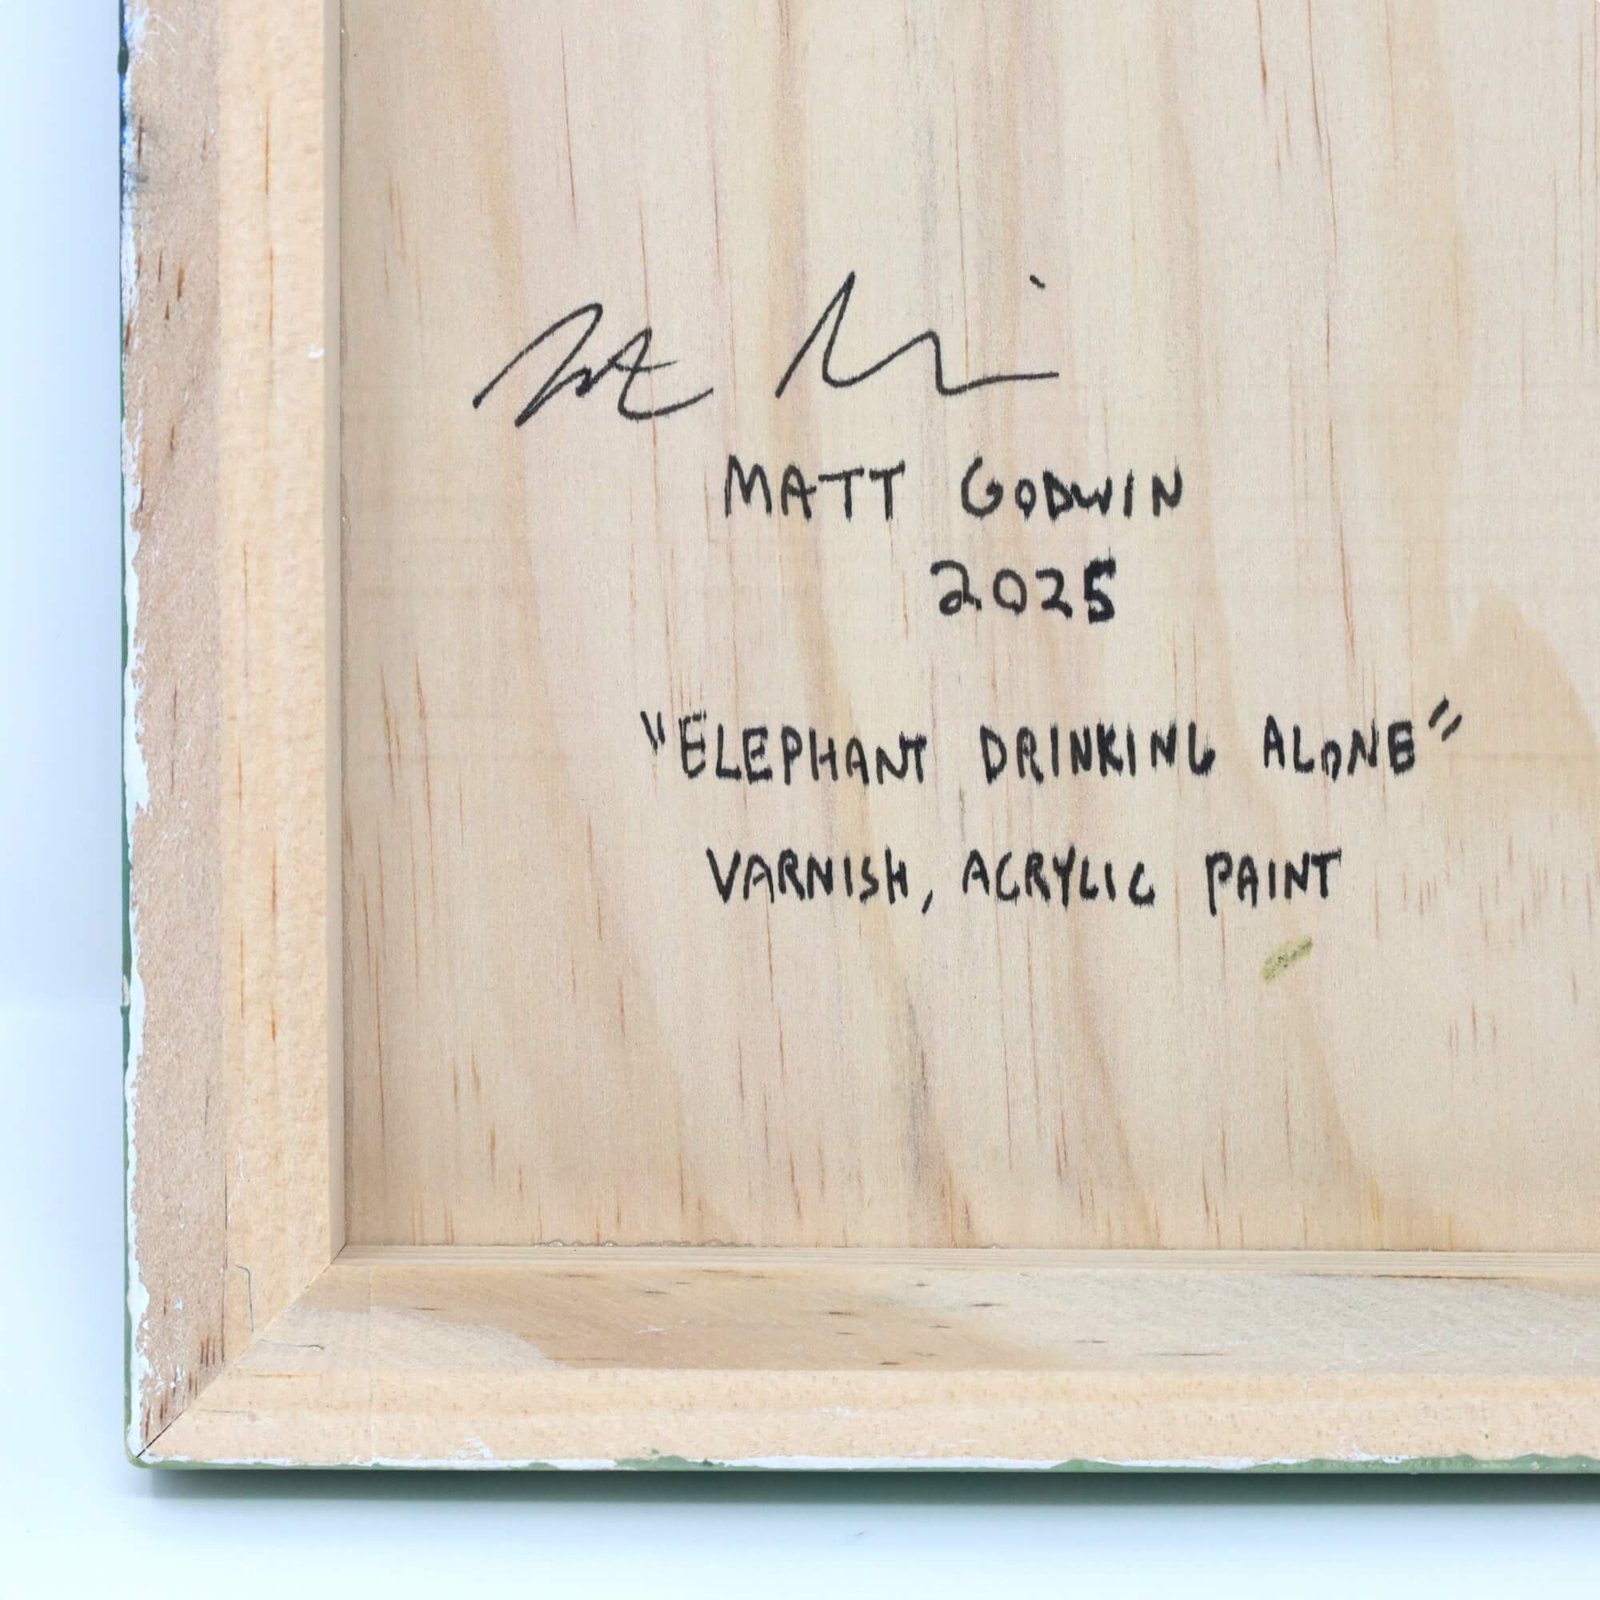 MATT GODWIN
2025
"ELEPHANT DRINKING ALONE"
VARNISH, ACRYLIC PAINT